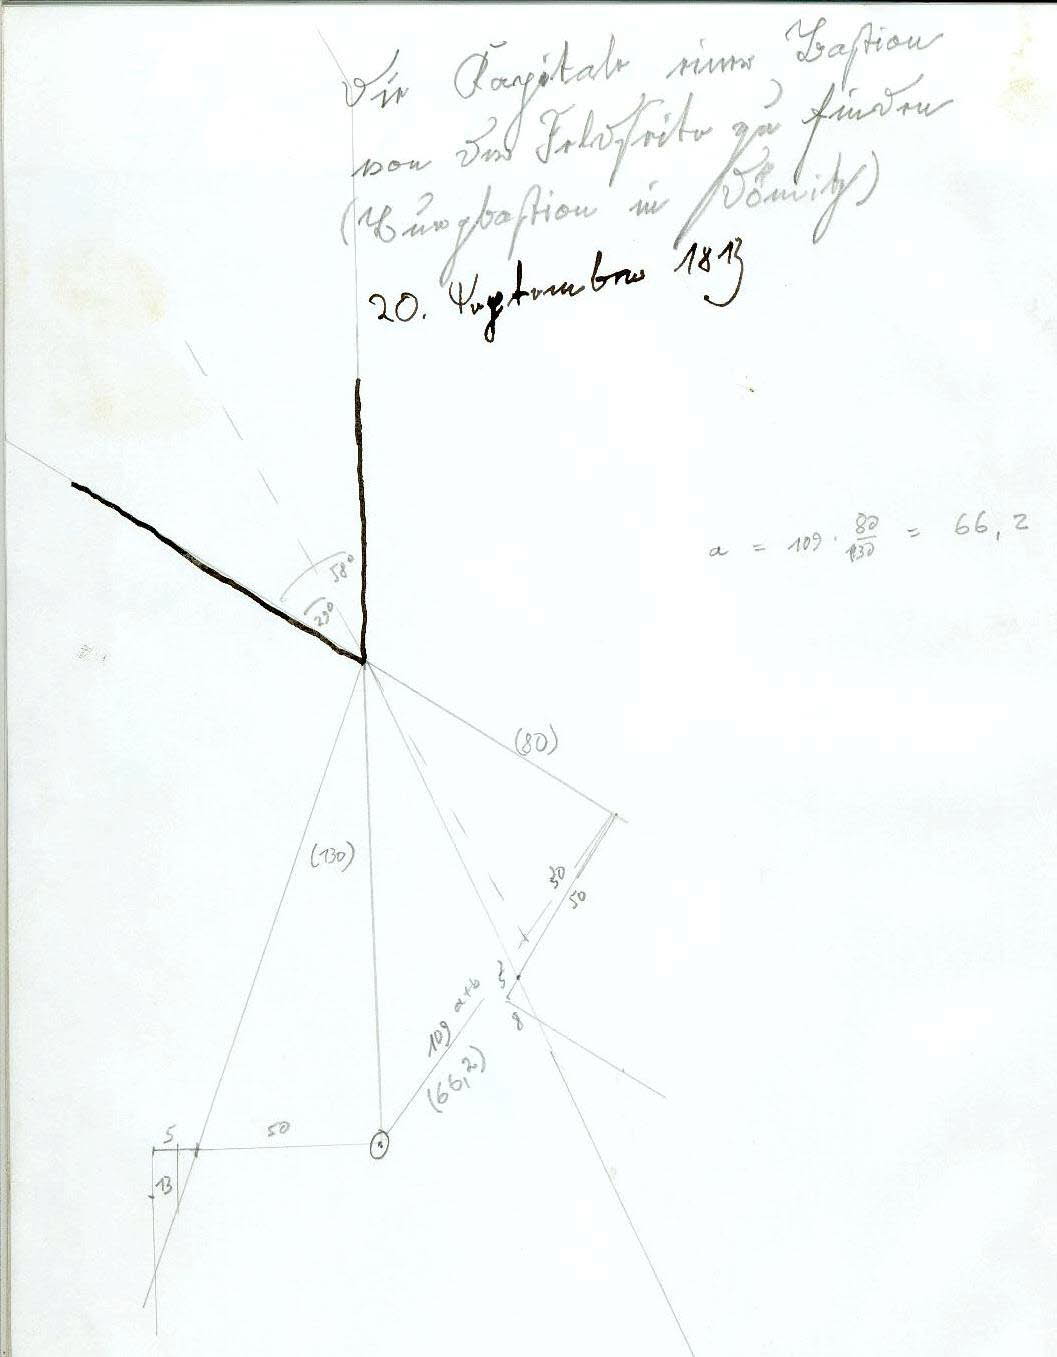 Die Kapitale einer Bastion
von der Feldseite zu finden
(Burgbastion in Dömitz)
20. September 1813
a = 109 · 80/130 = 66,2
58°
29°
(80)
(130)
30
50
3
8
109 a+b
(66,2)
5
50
13